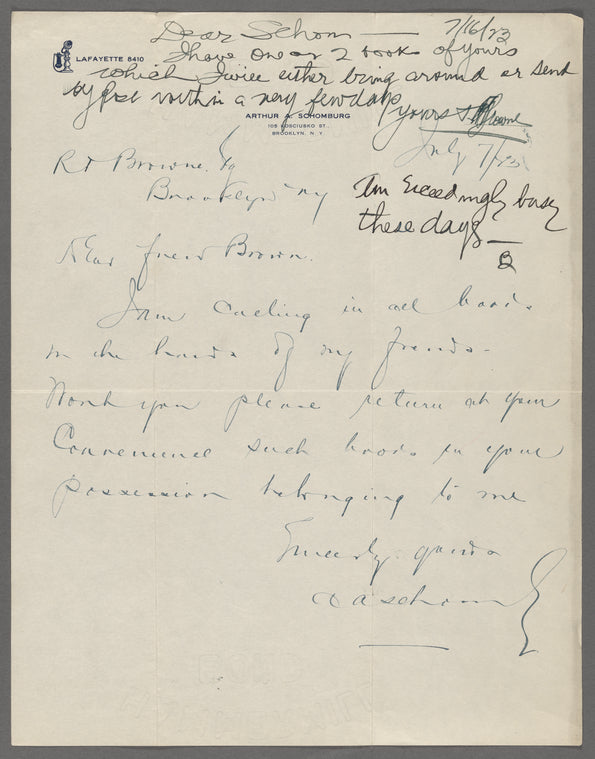 Dear Schom — 7/16/23
I have one or 2 books of yours
which I will either bring around or send
by post within a very few days
Yours
LAFAYETTE 8410
ARTHUR A. SCHOMBURG
105 KOSCIUSKO ST.,
BROOKLYN, N. Y.
July 7/23
R T Browne.
Brooklyn NY
Am Exceedingly busy
these days —
B
Dear friend Brown.
I am calling in all books
in the hands of my friends.
Wont you please return at your
Convenience such books in your
possession belonging to me
Sincerely yours
A A Schomburg
BOND
HAMMERMILL